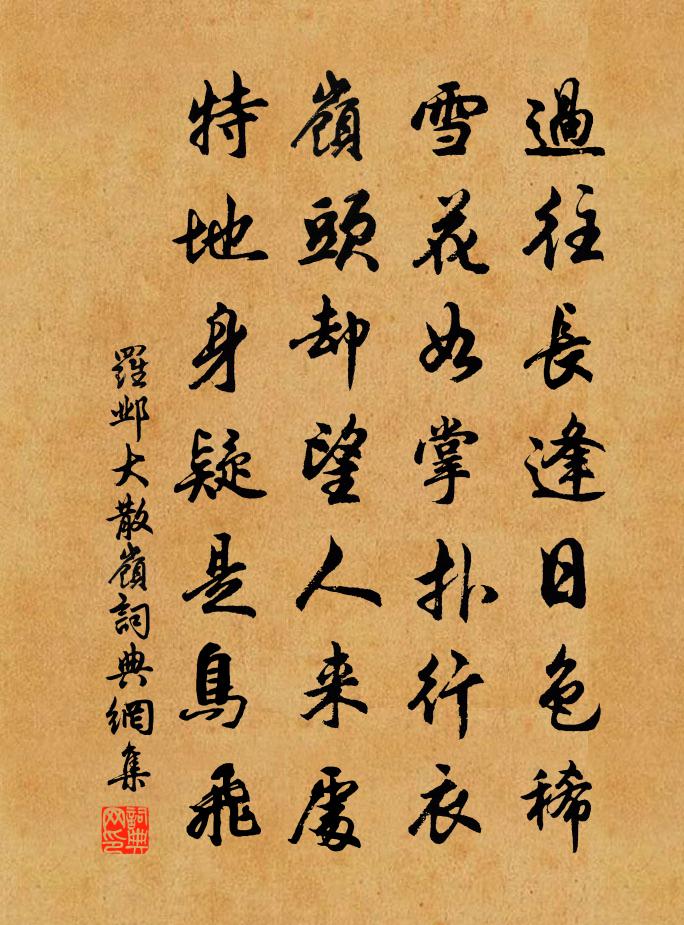 過往長逢日色稀
雪花如掌扑行衣
嶺頭却望人来處
特地身疑是鳥飛
羅鄴大散嶺詞典網集
詞典网印